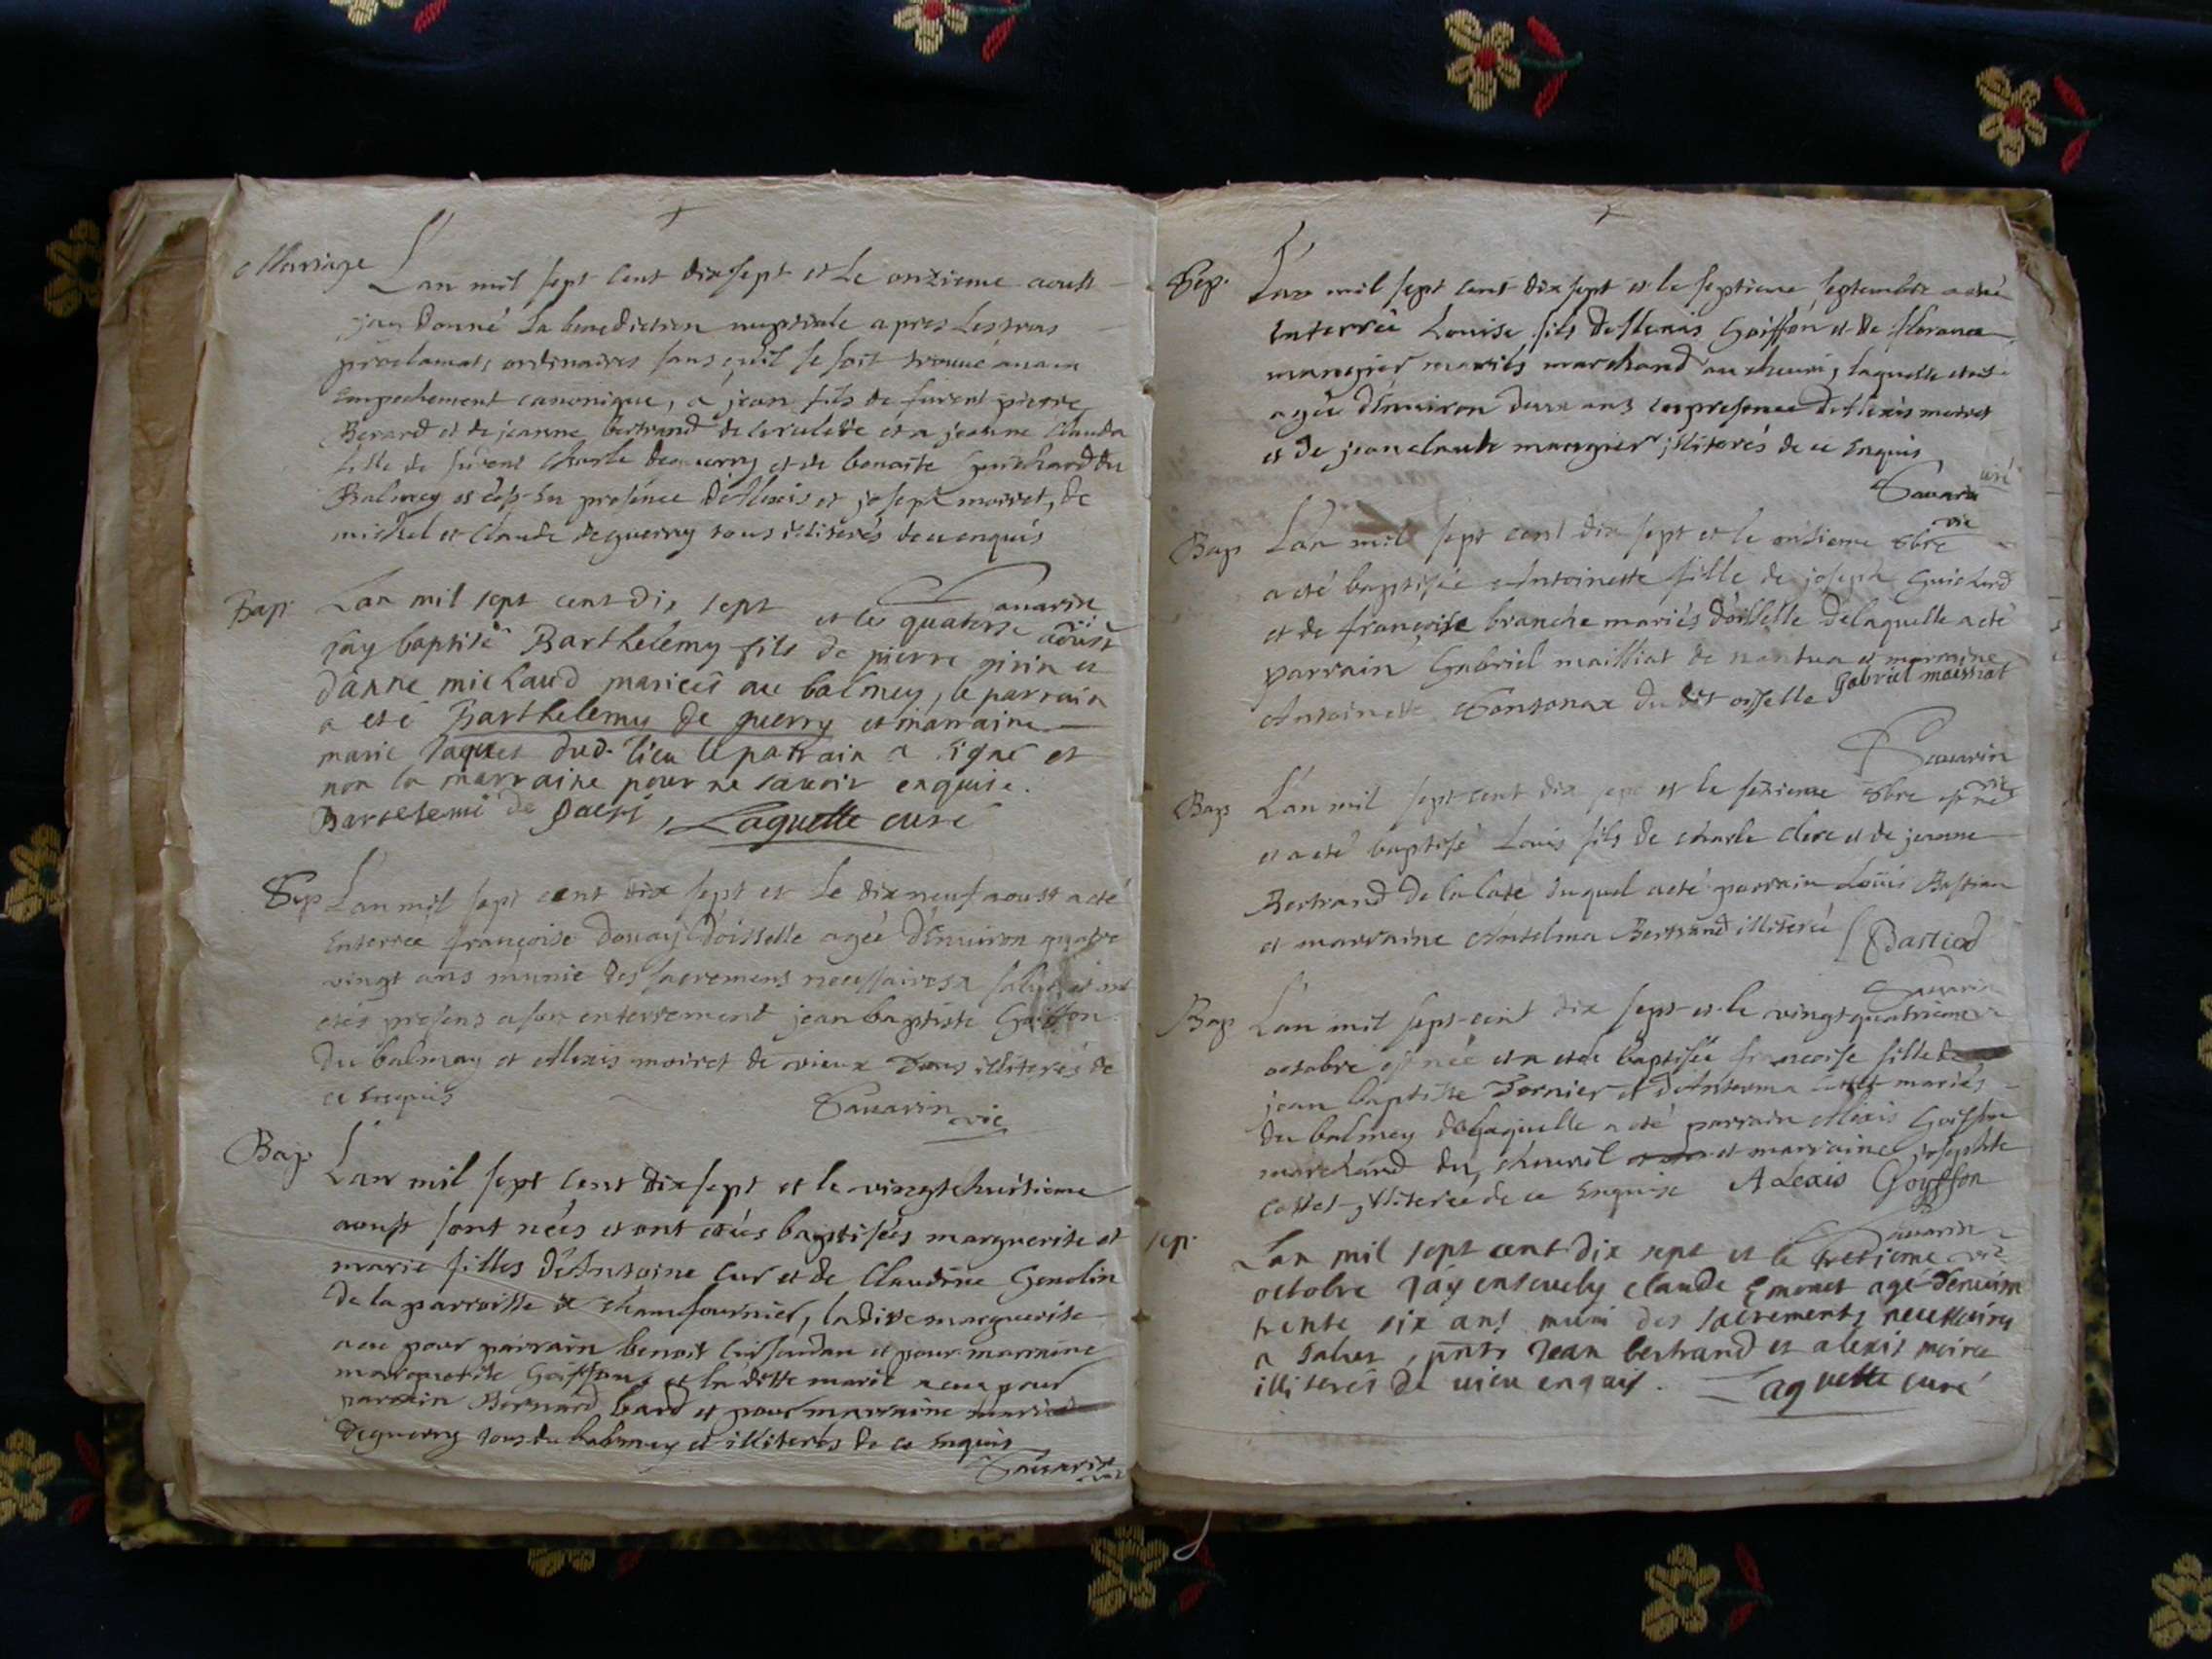 Mariage
Lan mil sept cent dix sept et le onzieme aoust
jay donné la benediction nuptiale apres les trois
proclamats ordinaires sans qu'il se soit trouvé aucun
empechement canonique, a jean fils de furent pierre
Berard et de jeanne bertrand de et a jeanne Clauda
fille de furent Charle deguerry et de benoite guichard du
Balmey et ce en presence d'Alexis et joseph moiret, de
michel et Claude deguerry tous illiterés de ce enquis
Sauarin
Bap. Lan mil sept cent dix sept et le quatorse aoust
jay baptisé Barthelemy fils de pierre girin et
danne michaud mariees au balmey, le parrain
a eté Barthelemy de guerry et marraine
marie Jaques dud. lieu le parrain a signé et
non la marraine pour ne savoir enquise.
Bartelemi de , Laquette curé
Sep Lan mil sept cent dix sept et le dix neuf aoust a eté
enterrée françoise d'oisselle agée d'enuiron quatre
vingt ans munie des sacremens necessaires a salut, et ont
etés presens a son enterrement jean baptiste Goiffon
du balmay et Alexis moiret de vieux tous illiterés de
ce enquis
Sauarin vic
Bap. Lan mil sept cent dix sept et le vingthuitieme
aoust sont nées et ont etées baptisées marguerite et
marie filles d'Antoine Cur et de Claudine Genolin
de la parroisse de chamfournier, la ditte marguerite
a eu pour parrain benoit et pour marraine
marguerite Goiffon et la ditte marie a eu pour
parrain Bernard bard et pour marraine marie
deguerry tous du balmey et illiterés de ce enquis
Sauarin
Sep. Lan mil sept cent dix sept et le septieme septembre a eté
enterrée Louise fils d'Alexis Goiffon et de florance
mangier mariés marchand au cheuril, laquelle etoit
agée d'enuiron deux ans en presence d'Alexis moiret
et de jean claude mangier illiterés de ce enquis
Sauarin
Bap Lan mil sept cent dix sept et le onsieme 8bre
a eté baptisée Antoinette fille de joseph Guichard
et de françoise branche mariés d'oisselle de laquelle a eté
parrain Gabriel maissiat de nantua et marraine
Antoinette du dit oisselle Gabriel maissiat
Sauarin vic
Bap Lan mil sept cent dix sept et le seizieme 8bre est né
et a eté baptisé Louis fils de charle clerc et de jeanne
Bertrand de duquel a eté parrain Loüis Bastian
et marraine Anselma Bertrand illiterée Bastiad
Sauarin
Bap Lan mil sept cent dix sept et le vingtquatrieme
octobre est née et a etée baptisée françoise fille de
jean baptiste Tornier et d'Anterma mariés
du balmey de laquelle a eté parrain Alexis Goiffon
marchand du cheuril et marraine josephte
illiterée de ce enquise Alexis Goyffon
Sauarin
sep. Lan mil sept cent dix sept et le tresieme
octobre jay enseuely claude Emonet agé d'enuiron
trente six ans muni des sacrements necessaires
a salut, pnts Jean bertrand et alexis moiret
illiterés de vieu enquis. Laquette curé